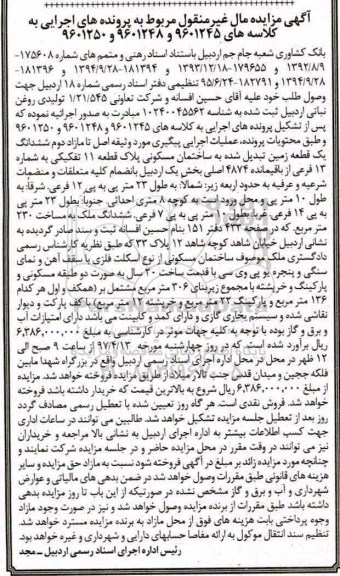 آگهی مزایده مال غیرمنقول مربوط به پرونده های اجرایی به
کلاسه های ۹۶۰۱۲۴۵ و ۹۶۰۱۲۴۸ و ۹۶۰۱۲۵۰
بانک کشاورزی شعبه جام جم اردبیل باستناد اسناد رهنی و متمم های شماره ۱۷۵۶۰۸-
۱۳۹۲/۸/۹ و ۱۷۹۶۵۵-۱۳۹۳/۱۲/۱۸ و ۱۸۱۳۹۴-۱۳۹۴/۹/۲۸ و ۱۸۱۳۹۶-
۱۳۹۴/۹/۲۸ و ۱۸۲۷۹۱-۹۵/۶/۲۴ تنظیمی دفتر اسناد رسمی شماره ۱۸ اردبیل جهت
وصول طلب خود علیه آقای حسین افسانه و شرکت تعاونی ۱/۲۱/۵۴۵ تولیدی روغن
نباتی اردبیل ثبت شده به شناسه ۱۰۲۴۰۰۴۵۵۶۲ مبادرت به صدور اجرائیه نموده که
پس از تشکیل پرونده های اجرایی به کلاسه های ۹۶۰۱۲۴۵ و ۹۶۰۱۲۴۸ و ۹۶۰۱۲۵۰
و طبق محتویات پرونده، عملیات اجرایی پیگیری مورد وثیقه اصل تا مازاد دوم ششدانگ
یک قطعه زمین تبدیل شده به ساختمان مسکونی پلاک قطعه ۱۱ تفکیکی به شماره
۱۳ فرعی از باقیمانده ۴۸۷۴ اصلی بخش یک اردبیل بانضمام کلیه متعلقات و منضمات
شرعیه و عرفیه به حدود اربعه زیر: شمالا: به طول ۲۳ متر پی به پی ۱۲ فرعی. شرقاً: به
طول ۱۰ متر پی و محل ورود است به کوچه ۸ متری احداثی. جنوباً: بطول ۲۳ متر پی
به پی ۱۴ فرعی. غرباً: بطول ۱۰ متر پی به پی ۷ فرعی. ششدانگ ملک به مساحت ۲۳۰
متر مربع. که در صفحه ۴۳۳ دفتر ۱۵۱ بنام حسین افسانه ثبت و سند صادر گردیده به
نشانی اردبیل خیابان شاهد کوچه شاهد ۱۲ پلاک ۳۳ که طبق نظریه کارشناس رسمی
دادگستری ملک موصوف ساختمان مسکونی از نوع اسکلت فلزی با سقف آهن و نمای
سنگی و پنجره یو پی وی سی با قدمت ساخت ۲۰ سال به صورت دو طبقه مسکونی و
پارکینگ و خرپشته با مجموع زیربنای ۳۰۶ متر مربع مشتمل بر (همکف و اول هر کدام
۱۳۶ متر مربع و پارکینگ ۲۴ متر مربع و خرپشته ۱۰ متر مربع) با کف پارکت و دیوار
نقاشی شده و سیستم بخاری گازی و دارای کمد و کابینت می باشد دارای امتیازات آب
و برق و گاز بوده با توجه به کلیه جهات موثر در کارشناسی به مبلغ ۶,۳۸۶,۰۰۰,۰۰۰
ریال برآورد شده است. که در روز چهارشنبه مورخه ۹۷/۴/۱۳ از ساعت ۹ صبح الی
۱۲ ظهر در محل در محل اداره اجرای اسناد رسمی اردبیل واقع در بزرگراه شهدا مابین
فلکه ججین و میدان قدس جنب تالار میلاد از طریق مزایده فروخته خواهد شد. مزایده
از مبلغ ۶,۳۸۶,۰۰۰,۰۰۰ ریال شروع به بالاترین قیمت که خریدار داشته باشد فروخته
خواهد شد. فروش نقدی است. هر گاه روز تعیین شده با تعطیل رسمی مصادف گردد
روز بعد از تعطیل جلسه مزایده تشکیل خواهد شد. طالبین می توانند در ساعات اداری
جهت کسب اطلاعات بیشتر به اداره اجرای اردبیل به نشانی بالا مراجعه و خریداران
نیز می توانند در وقت مقرر در محل مزایده حاضر و در جلسه مزایده شرکت نمایند و
چنانچه مورد مزایده زائد بر مبلغ در آگهی فروخته شود نسبت به مازاد حق مزایده و سایر
هزینه های قانونی طبق مقررات وصول خواهد شد در ضمن بدهی های مالیاتی و عوارض
شهرداری و آب و برق و گاز مشخص نشده در صورتیکه از این باب تا روز مزایده بدهی
داشته باشد طبق مقررات از برنده مزایده وصول خواهد شد و نیز در صورت وجود مازاد
وجوه پرداختی بابت هزینه های فوق از محل مازاد به برنده مزایده مسترد خواهد شد.
تنظیم سند انتقال موکول به ارائه مفاصا حسابهای دارایی و شهرداری و غیره خواهد بود.
رئیس اداره اجرای اسناد رسمی اردبیل - مجد